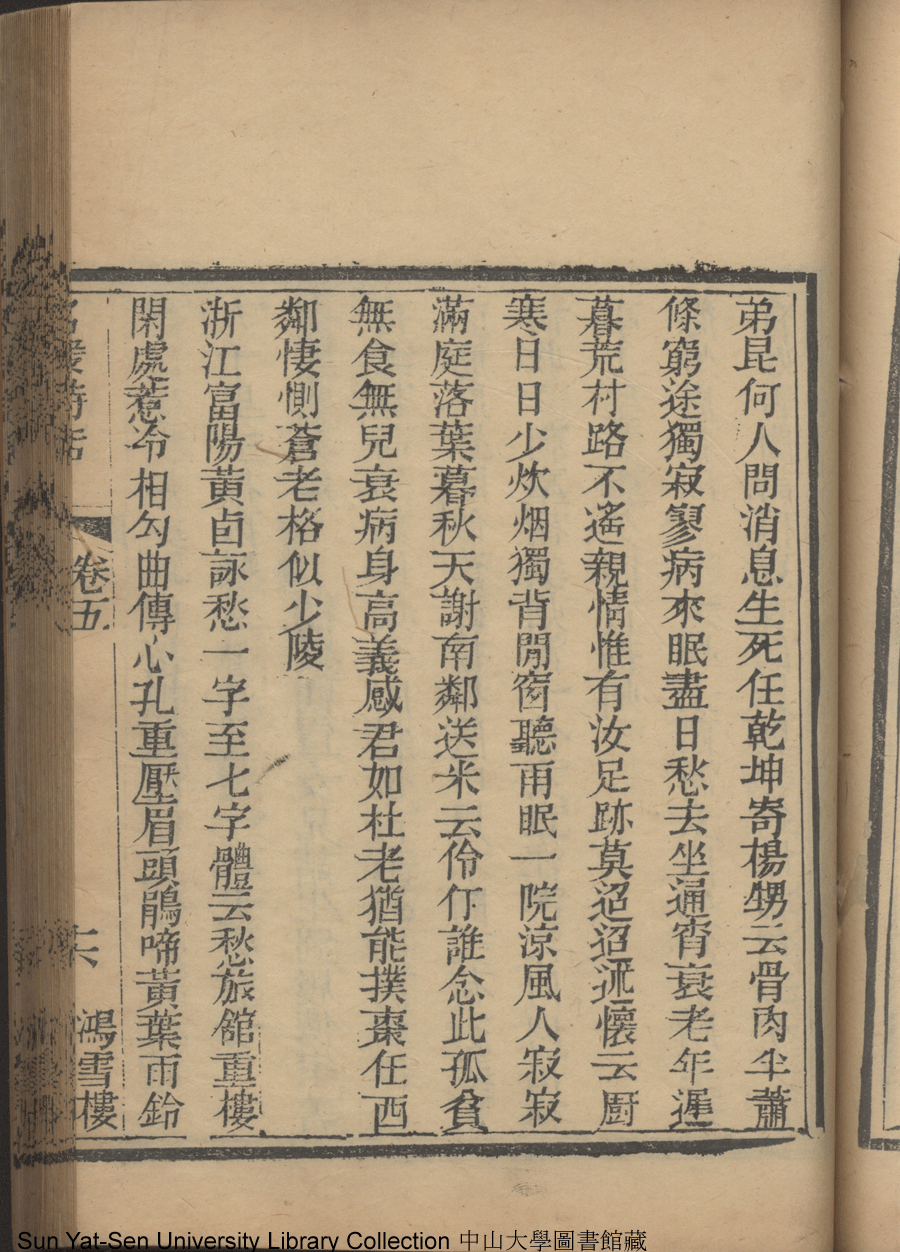 弟昆何人問消息生死任乾坤寄楊甥云骨肉半蕭
條窮途獨寂寥病來眠盡日愁去坐通宵衰老年遲
暮荒村路不遙親情惟有汝足跡莫迢迢述懷云厨
寒日日少炊烟獨背閒窗聽雨眠一院凉風人寂寂
滿庭落葉暮秋天謝南鄰送米云伶仃誰念此孤貧
無食無兒衰病身高義感君如杜老猶能撲棗任西
鄰悽惻蒼老格似少陵
浙江富陽黃卣詠愁一字至七字體云愁旅館重樓
閑處惹冷相勾曲傳心孔重壓眉頭鵑啼黃葉雨鈴
名媛詩話
卷五
六
鴻雪樓
Sun Yat-Sen University Library Collection 中山大學圖書館藏